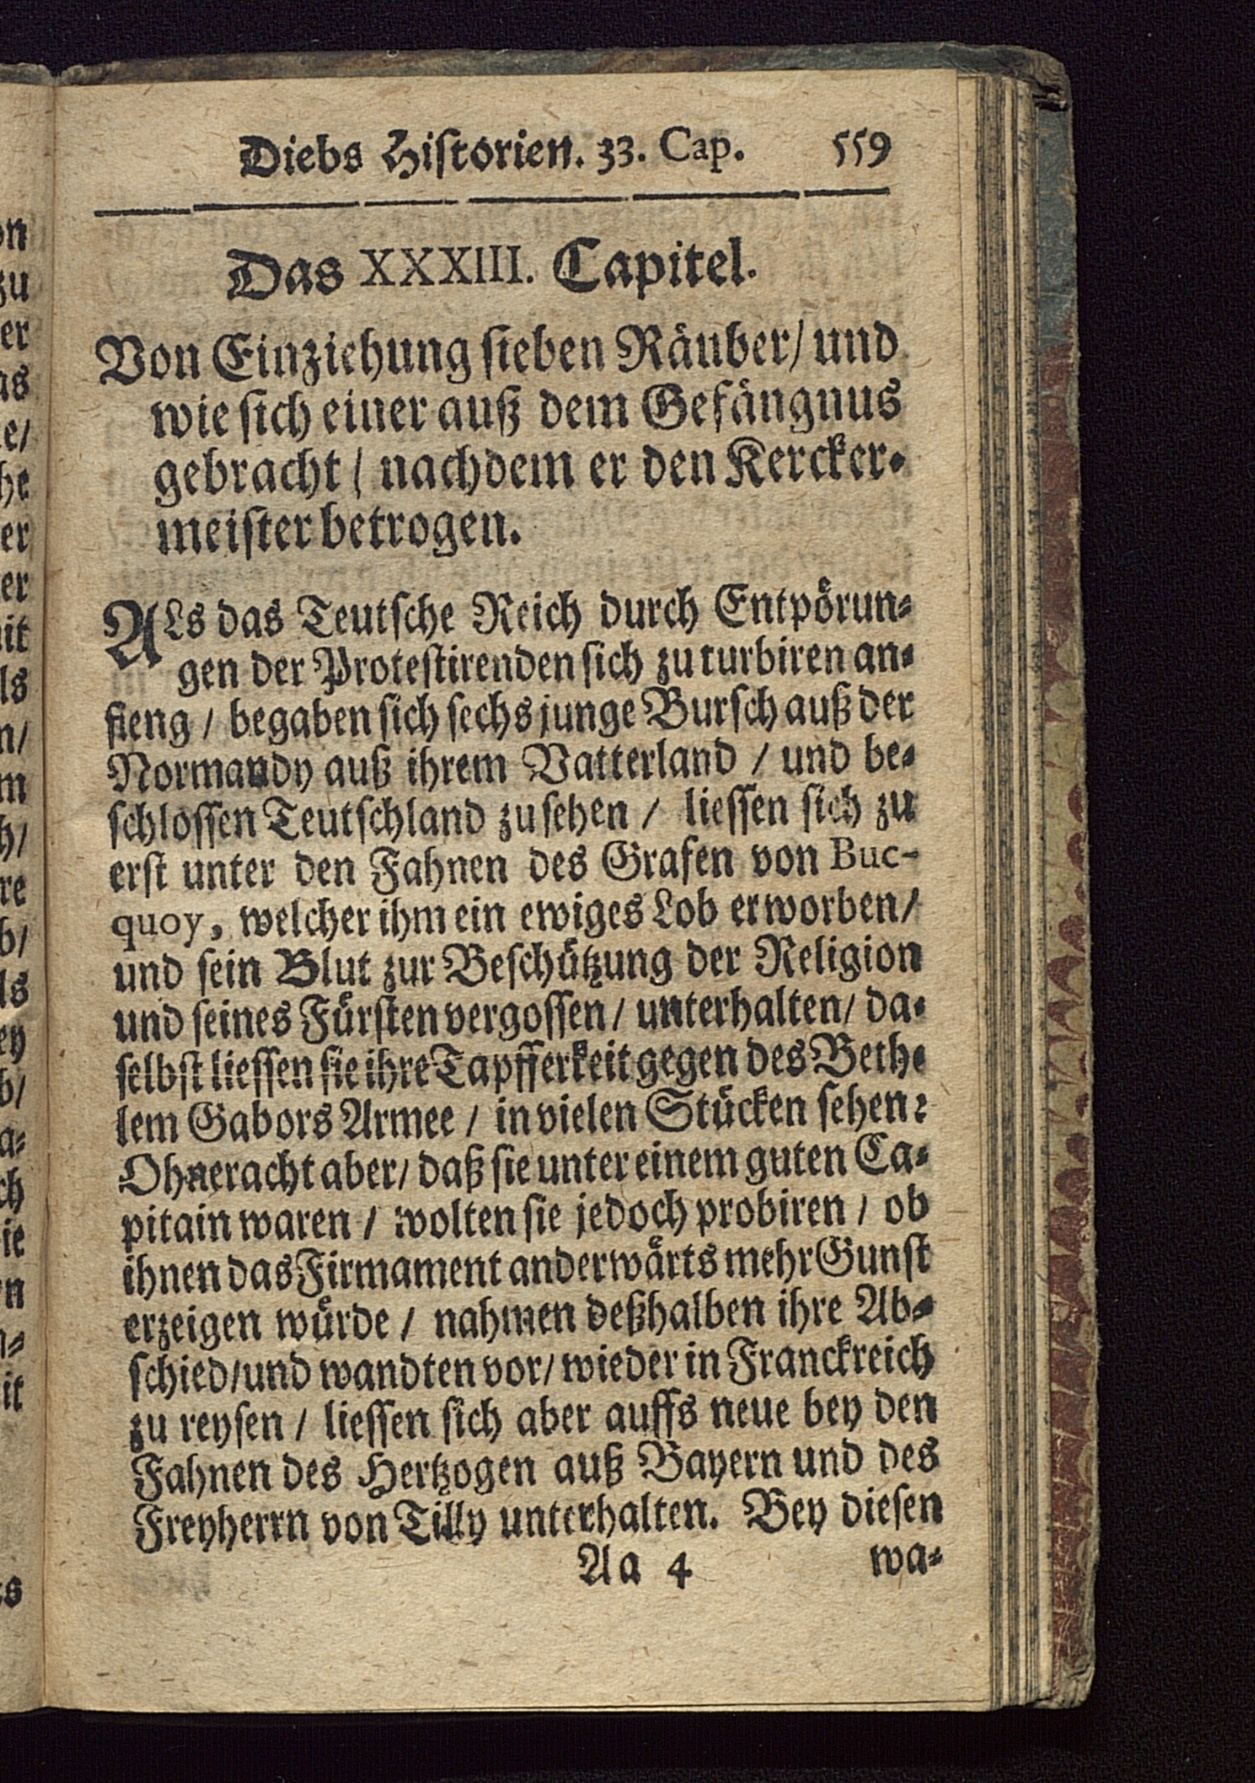 Diebs Historien. 33. Cap. 559
Das XXXIII. Capitel.
Von Einziehung sieben Räuber/ und
wie sich einer auß dem Gefängnus
gebracht / nachdem er den Kercker-
meister betrogen.
ALs das Teutsche Reich durch Entpörun-
gen der Protestirenden sich zu turbiren an-
fieng / begaben sich sechs junge Bursch auß der
Normandy auß ihrem Vatterland / und be-
schlossen Teutschland zu sehen / liessen sich zu
erst unter den Fahnen des Grafen von Buc-
quoy, welcher ihm ein ewiges Lob erworben/
und sein Blut zur Beschützung der Religion
und seines Fürsten vergossen/ unterhalten/ da-
selbst liessen sie ihre Tapfferkeit gegen des Beth-
lem Gabors Armee / in vielen Stücken sehen:
Ohneracht aber/ daß sie unter einem guten Ca-
pitain waren / wolten sie jedoch probiren / ob
ihnen das Firmament anderwärts mehr Gunst
erzeigen würde / nahmen deßhalben ihre Ab-
schied/und wandten vor/ wieder in Franckreich
zu reysen / liessen sich aber auffs neue bey den
Fahnen des Hertzogen auß Bayern und des
Freyherrn von Tilly unterhalten. Bey diesen
Aa 4 wa-